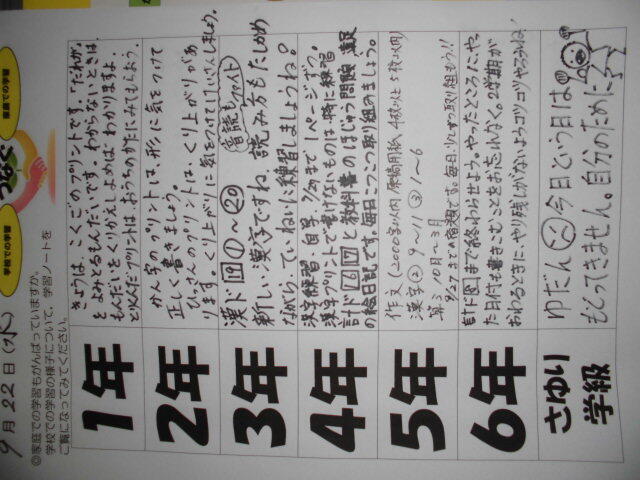 9月22日(水)
学校での学習
つなぐ
家庭での学習
◎家庭での学習もがんばっていますか。
学校での学習の様子について、学習ノートを
ご覧になってみてください。
1年
きょうは、こくごのプリントです。「だれが」
をよみとるもんだいです。わからないときは、
もんだいをくりかえしよめば、わかりますよ。
とりくんだプリントは、おうちのかたにみてもらおう。
2年
かん字のプリントは、形に気をつけて
正しく書きましょう。
ひっさんのプリントは、くり上がりがあ
ります。くり上がりに気をつけてけいさんしましょう。
3年
漢ド19①~20
音読もファイト
新しい漢字ですね。読み方もたしかめ
ながら、ていねいに練習しましょうね。
4年
漢字練習・自学、7/20まで1ページずつ。
漢字プリントで書けないものは特に練習。
計ド16 17と教科書のほじゅう問題、
の絵日記です。毎日こつこつ取り組みましょう。
5年
作文(2000字以内 原稿用紙4枚以上5枚以内)
漢字② 9~11 ③1~6
算③10月~3月
までの宿題です。毎日少しずつ取り組もう!!
6年
計ド まで終わらせよう。やったところにやっ
た日付も書きこむことをお忘れなく。2学期が
おわるときに、やり残しがないようコツコツやろうね!
さゆり
学級
ゆだん 今日という日は
もどってきません。自分のために